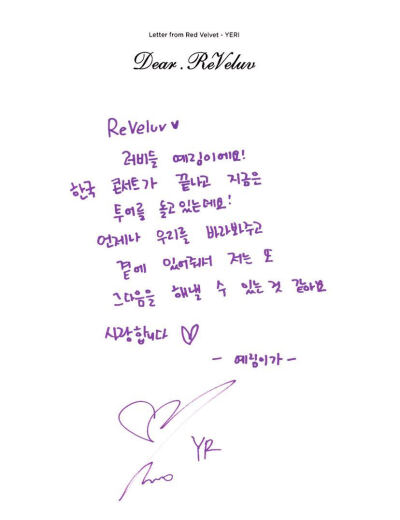 Letter from Red Velvet - YERI
Dear. ReVeluv
ReVeluv ♥
러비들 예림이에요!
한국 콘서트가 끝나고 지금은
투어를 돌고있는데요!
언제나 우리를 바라봐주고
곁에 있어줘서 저는 또
그다음을 해낼 수 있는 것 같아요
사랑합니다 ♡
- 예림이가 -
YR